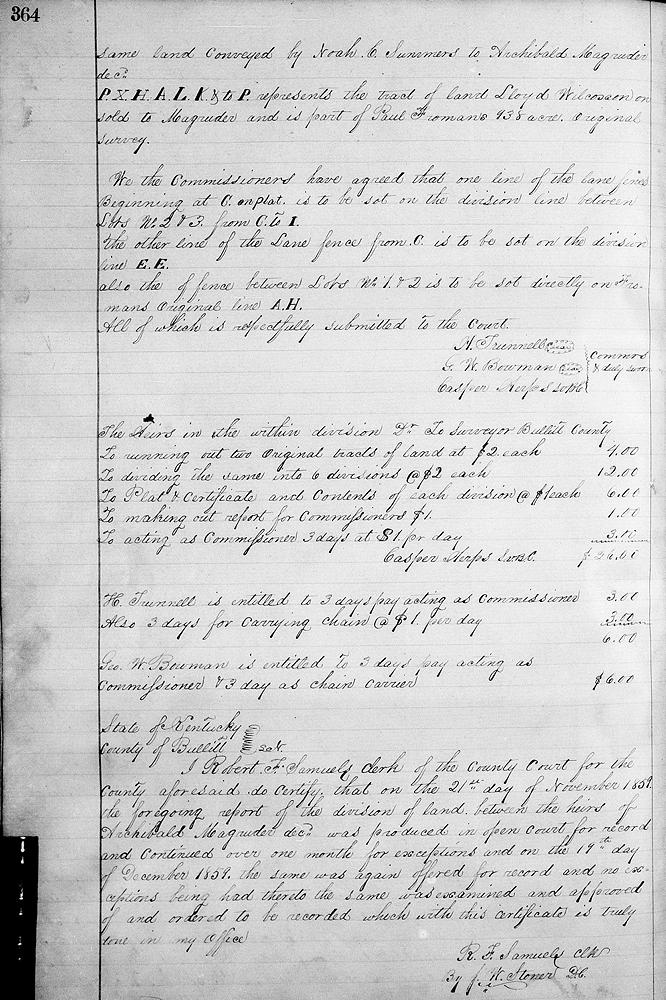 364
same land Conveyed by Noah C. Summers to Archibald Magruder
decd
P. X. H. A. L. K. & to P. represents the tract of land Lloyd Wilcoxon on
sold to Magruder and is part of Paul Fromans 938 acre. Original
survey.
We the Commissioners have agreed that one line of the lane fence
Beginning at C. on plat. is to be sot on the division line between
Lots No. 2 & 3. from C. to I.
the other line of the Lane fence from C. is to be sot on the division
line E. E.
also the of fence between Lots No. 1. & 2 is to be sot directly on Fro-
mans Original line A.H.
All of which is respectfully submitted to the Court.
H. Trunnell
G. W. Bowman
Casper Herps
Commrs
& duly sworn
The Heirs in the within division Dr. To Surveyor Bullitt County
To running out two Original tracts of land at $2 each 4.00
To dividing the same into 6 divisions @ $2 each 12.00
To Plat & Certificate and Contents of each division @ $1 each 6.00
To making out report for Commissioners $1. 1.00
To acting as Commissioner 3 days at $1. pr day 3.00
Casper Herps S.B.C. $26.00
H. Trunnell is entitled to 3 days pay acting as Commissioner 3.00
Also 3 days for Carrying chain @ $1. per day 3.00
6.00
Geo. W. Bowman is entitled to 3 days pay acting as
Commissioner & 3 day as chain carrier $6.00
State of Kentucky
County of Bullitt Sct.
I Robert F. Samuels Clerk of the County Court for the
County aforesaid do Certify, that on the 21st day of November 1859.
the foregoing report of the division of land between the heirs of
Archibald Magruder decd was produced in open Court for record
and Continued over one month for exceptions and on the 19th day
of December 1859. the same was again offered for record and no ex-
ceptions being had thereto the same was examined and approved
of and ordered to be recorded which with this certificate is truly
done in my Office
R. F. Samuels Clk
By J. W. Stoner D.C.